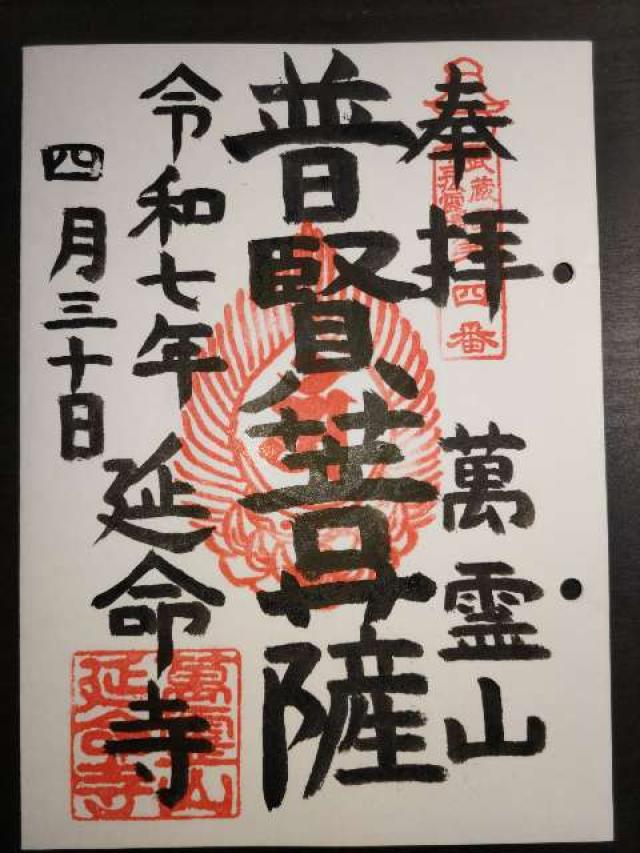 奉拝
萬霊山
普賢菩薩
令和七年
四月三十日
延命寺
武蔵
四番
萬霊山
延命寺